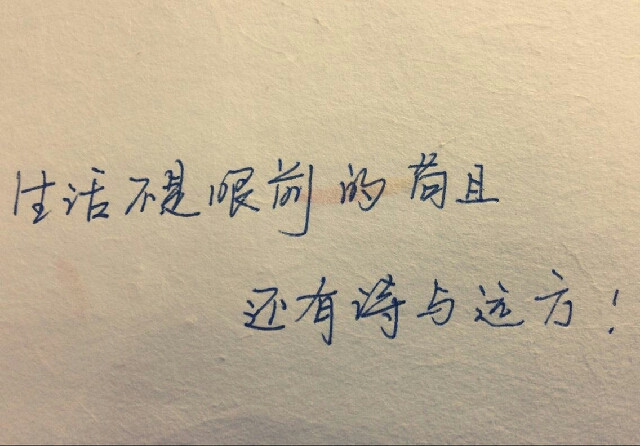 生活不是眼前的苟且
还有诗与远方！